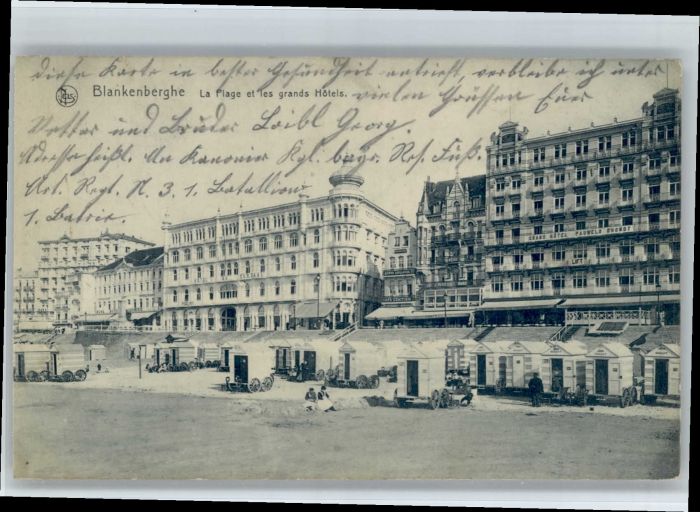 diese Karte in bester Gesundheit antrieft, verbleibe ich unter
Blankenberghe La Plage et les grands Hôtels.
vielen Grüssen Euer
Vetter und Bruder Loibl Georg.
Adresse heißt. An Kanonier Kgl. bayr. Res. Fuß.
Art. Regt. N. 3. 1. Batallion
1. Batrie.
GRAND HOTEL PAUWELS D'HONDT